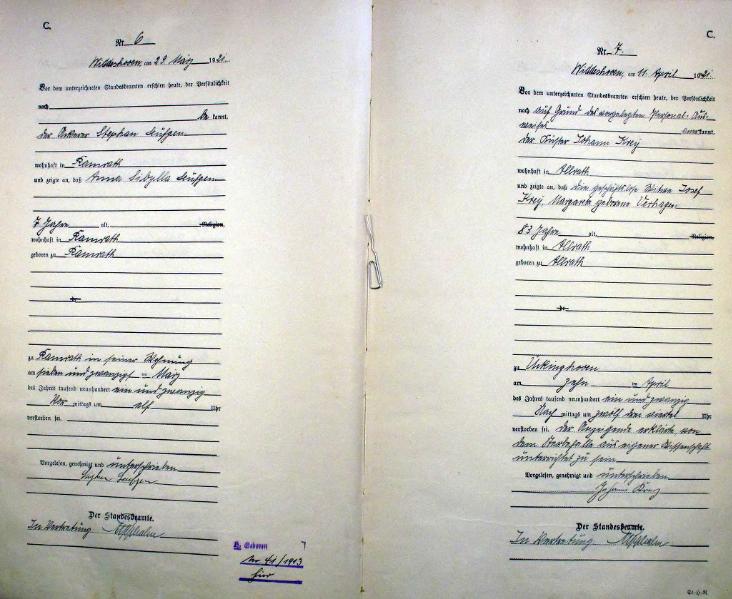 C.
Nr. 6
am 29 März 1921.
Vor dem unterzeichneten Standesbeamten erschien heute, der Persönlichkeit
nach
be kannt,
der Ackerer Stephan
wohnhaft in Ramrath
und zeigte an, daß Anna Sibylla
7 Jahre alt, Religion,
wohnhaft in Ramrath
geboren zu Ramrath
zu Ramrath in seiner Wohnung
am sieben und zwanzigst en März
des Jahres tausend neunhundert ein und zwanzig
Vor mittags um elf Uhr
verstorben sei.
Vorgelesen, genehmigt und unterschrieben
Der Standesbeamte.
In Vertretung
Geboren
Nr 41/1913
hier
C.
Nr. 7
am 11 April 1921.
Vor dem unterzeichneten Standesbeamten erschien heute, der Persönlichkeit
nach auf Grund des vorgelegten Personal-Aus-
weises anerkannt,
der Küster Johann
wohnhaft in Allrath
und zeigte an, daß die geschäftslose Witwe Josef
Margareta geborene Verhagen
83 Jahre alt, Religion,
wohnhaft in Allrath
geboren zu Allrath
zu
am zehn en April
des Jahres tausend neunhundert ein und zwanzig
Nach mittags um zwölf drei viertel Uhr
verstorben sei. Der Anzeigende erklärte von
dem Sterbefalle aus eigener Wissenschaft
unterrichtet zu sein.
Vorgelesen, genehmigt und unterschrieben
Johann
Der Standesbeamte.
In Vertretung